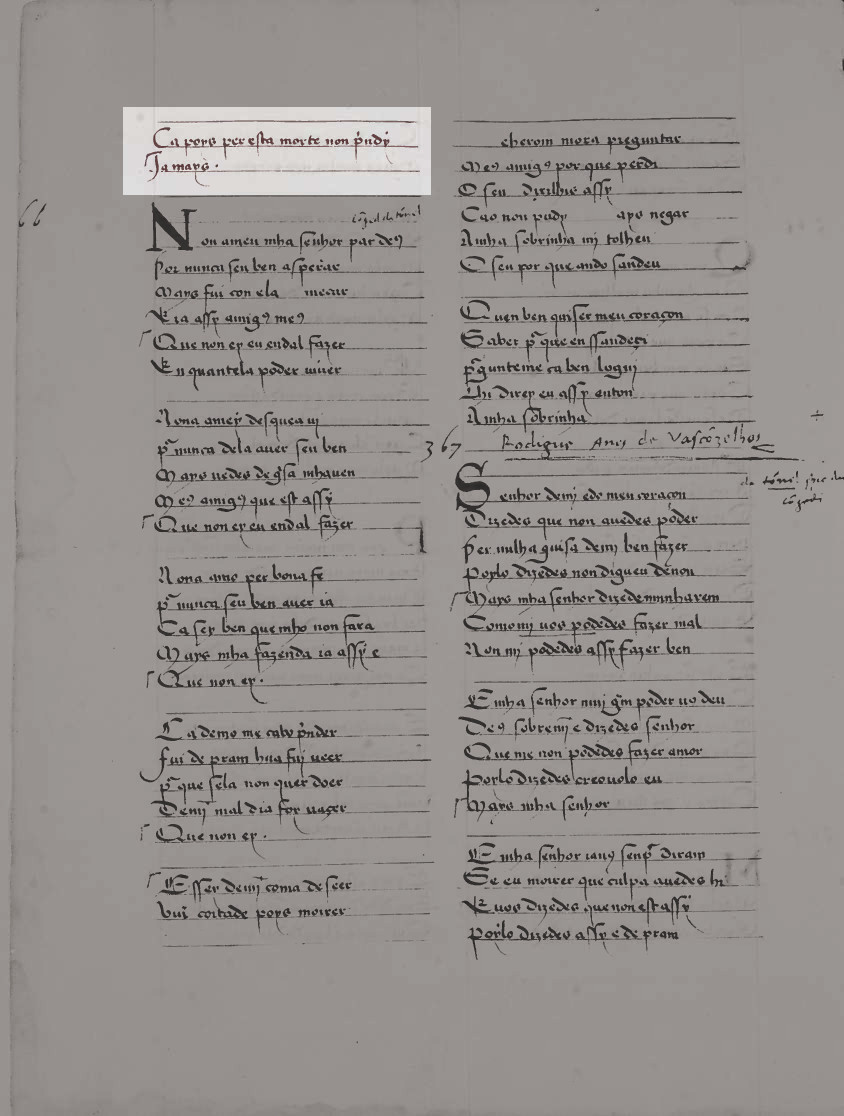 Ca poys per esta morte non p'ndy
Ja mays.
cōged do tōrnel
Non ameu mha senhor par deꝯ
Por nunca seu ben asperar
Mays fui con ela meçar
E ia assy amigꝯ meꝯ
Que non ey eu endal fazer
En quantela poder uiuer
Nona amey desquea ui
p̄ nunca dela auer seu ben
Mays uedes de g'sa mhauen
Meꝯ amigꝯ que est assy
Que non ey eu endal fazer
Nona amo per bona fe
p̄ nunca seu ben auer ia
Ca sey ben que mho non fara
Mays mha fazenda ia assy e
Que non ey.
Ca demo me cabo p'nder
fui de pram hua fui ueer
p̄ que sela non quer doer
Demī mal dia foy naçer
Que non ey.
Esser demī coma de seer
Vuī coitade poys moirer
cherom mora preguntar
Meꝯ amigꝯ por que perdi
O seu dixilhis assy
Cao non pudy ayo negar
Amha sobrinha mi tolheu
O seu por que ando sandeu
Quen ben quiser meu coraçon
Saber p̄ que en ssandeçi
p̄gunteme ca ben loguj
Lhi direy eu assy enton
Amha sobrinha
367 Rodigue Anes de Vascōzelhos
Senhor demj edo meu coraçon
Dizedes que non auedes poder
Per nulha guisa demj ben fazer
Poylo dizedes non digueu denon
Mays mha senhor dizedemunharem
Comomj uos podedes fazer mal
Non mj podedes assy fazer ben
E mha senhor muj gm̄ poder uo deu
Deꝯ sobremj e dizedes senhor
Que me non podedes fazer amor
Porlo dizedes creouolo eu
Mays mha senhor
E mha senhor iauꝯ senp̄ diram
Se eu moirer que culpa auedes hi
E uos dizedes que non est assy
Poylo dizedes assy e de pram